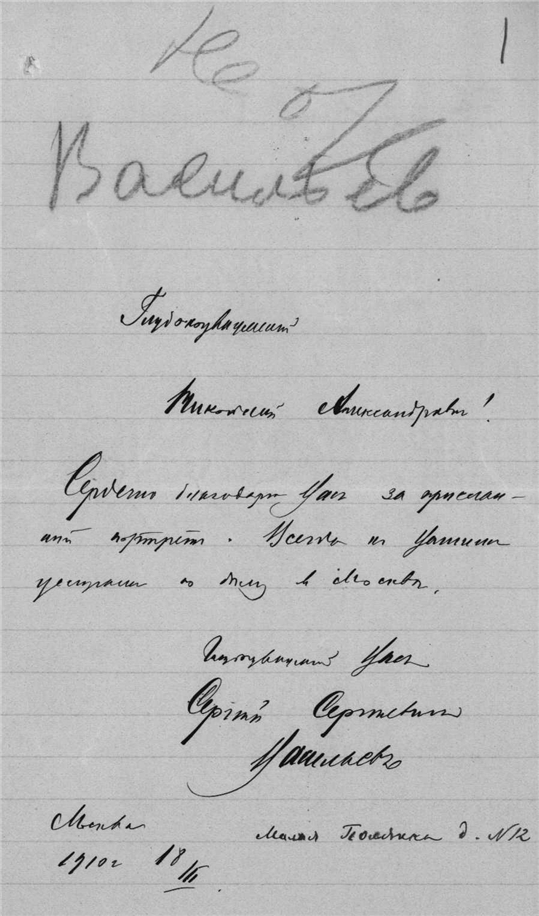 1
Не от
Васильев
Глубокоуважаемый
Николай Александрович!
Сердечно благодарю Вас за прислан-
ный портрет. Всегда к Вашим
услугам по делу в Москве.
Глубокоуважающий Вас
Сергѣй Сергѣевичъ
Васильевъ
Москва
1910 г 18/III
Малая Полянка д. N12